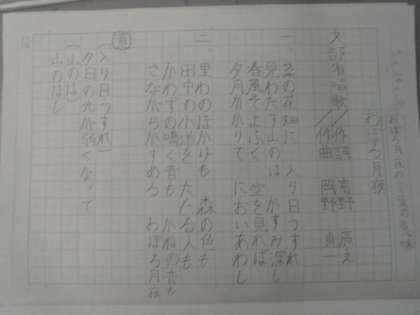 おぼろ月夜
文部省唱歌／作詞 高野 辰之
作曲 岡野 貞一
一
菜の花畑に 入り日うすれ
見わたす山のは かすみ深し
春風そよふく 空を見れば
夕月かかりて においあわし
二
里わのほかげも 森の色も
田中の小道を たどる人も
かわずの鳴く音も かねの音も
さながらかすめる おぼろ月夜
（入り日うすれ）
夕日の光が弱くなって
（山のは）
山のはし